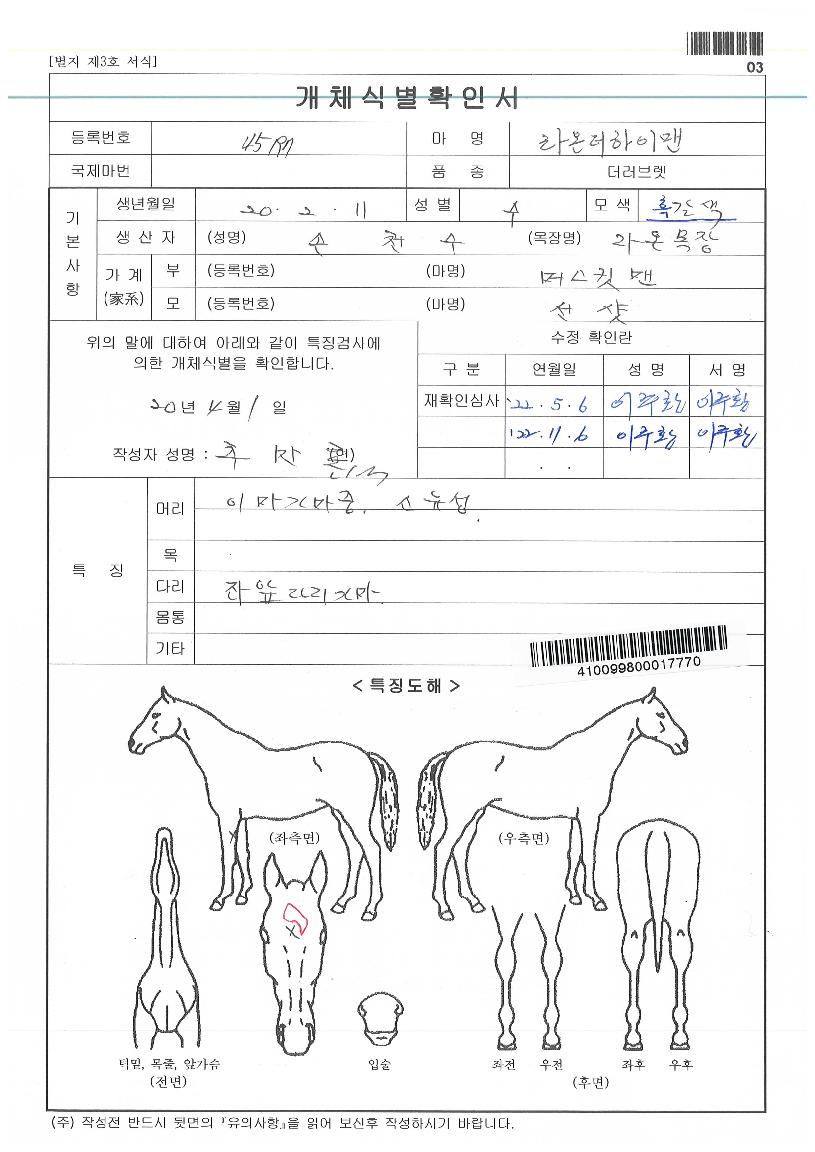 [별지 제3호 서식]
03
개체식별확인서
등록번호 마 명 라온더하이맨
국제마번 품 송 더러브렛
기본사항
생년월일 20 . 2 . 11 성 별 수 모 색 흑갈색
생 산 자 (성명) 손 천 수 (목장명) 라온목장
가 계 (家系) 부 (등록번호) (마명) 머스킷맨
모 (등록번호) (마명) 선 샷
위의 말에 대하여 아래와 같이 특징검사에
의한 개체식별을 확인합니다.
20년 4월 1일
작성자 성명 :
수정 확인란
구 분 연월일 성 명 서 명
재확인심사 '22 . 5 . 6 이주황 이주황
'22 . 11 . 6 이주황 이주황
. .
특 징
머리 이마가마중, 소유성.
목
다리 좌앞다리가마.
몸통
기타
410099800017770
< 특징도해 >
(좌측면) (우측면)
턱밑, 목줄, 앞가슴 입술 좌전 우전 좌후 우후
(전면) (후면)
(주) 작성전 반드시 뒷면의 『유의사항』을 읽어 보신후 작성하시기 바랍니다.